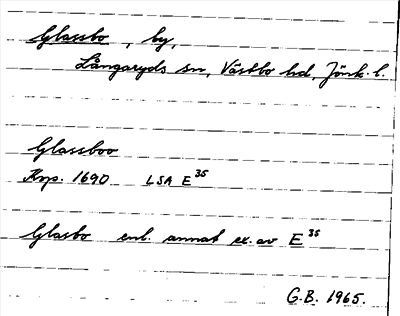 Glassbo, by,
Långaryds sn, Västbo hd, Jönk. l.
Glassboo
Kop. 1690 LSA E 35
Glasbo enl. annat ex. av E 35
G.B. 1965.